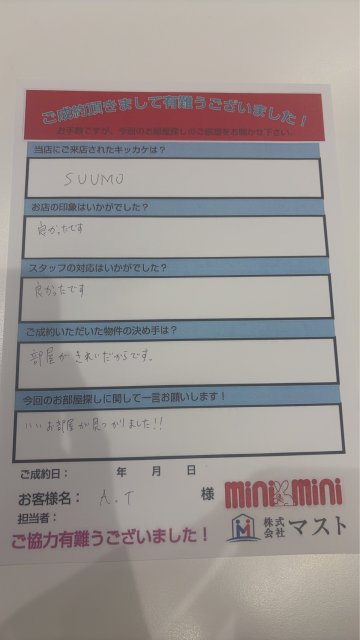 ご成約頂きまして有難うございました！
お手数ですが、今回のお部屋探しのご感想をお聞かせ下さい。
当店にご来店されたキッカケは？
SUUMO
お店の印象はいかがでした？
良かったです
スタッフの対応はいかがでした？
良かったです
ご成約いただいた物件の決め手は？
部屋がきれいだからです。
今回のお部屋探しに関して一言お願いします！
いいお部屋が見つかりました!!
ご成約日： 年 月 日
お客様名： A.T 様
mini mini
担当者：
株式会社 マスト
ご協力有難うございました！